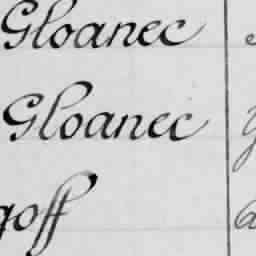 Gloanec
Gloanec
goff